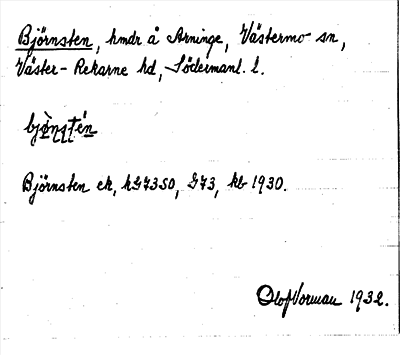 Björnsten, hmdr å Arninge, Västermo sn,
Väster-Rekarne hd, Södermanl. l.
bjö̀ɳʂʈén
Björnsten ek, hG73SO, G73, kb 1930.
Olof Vorman 1932.